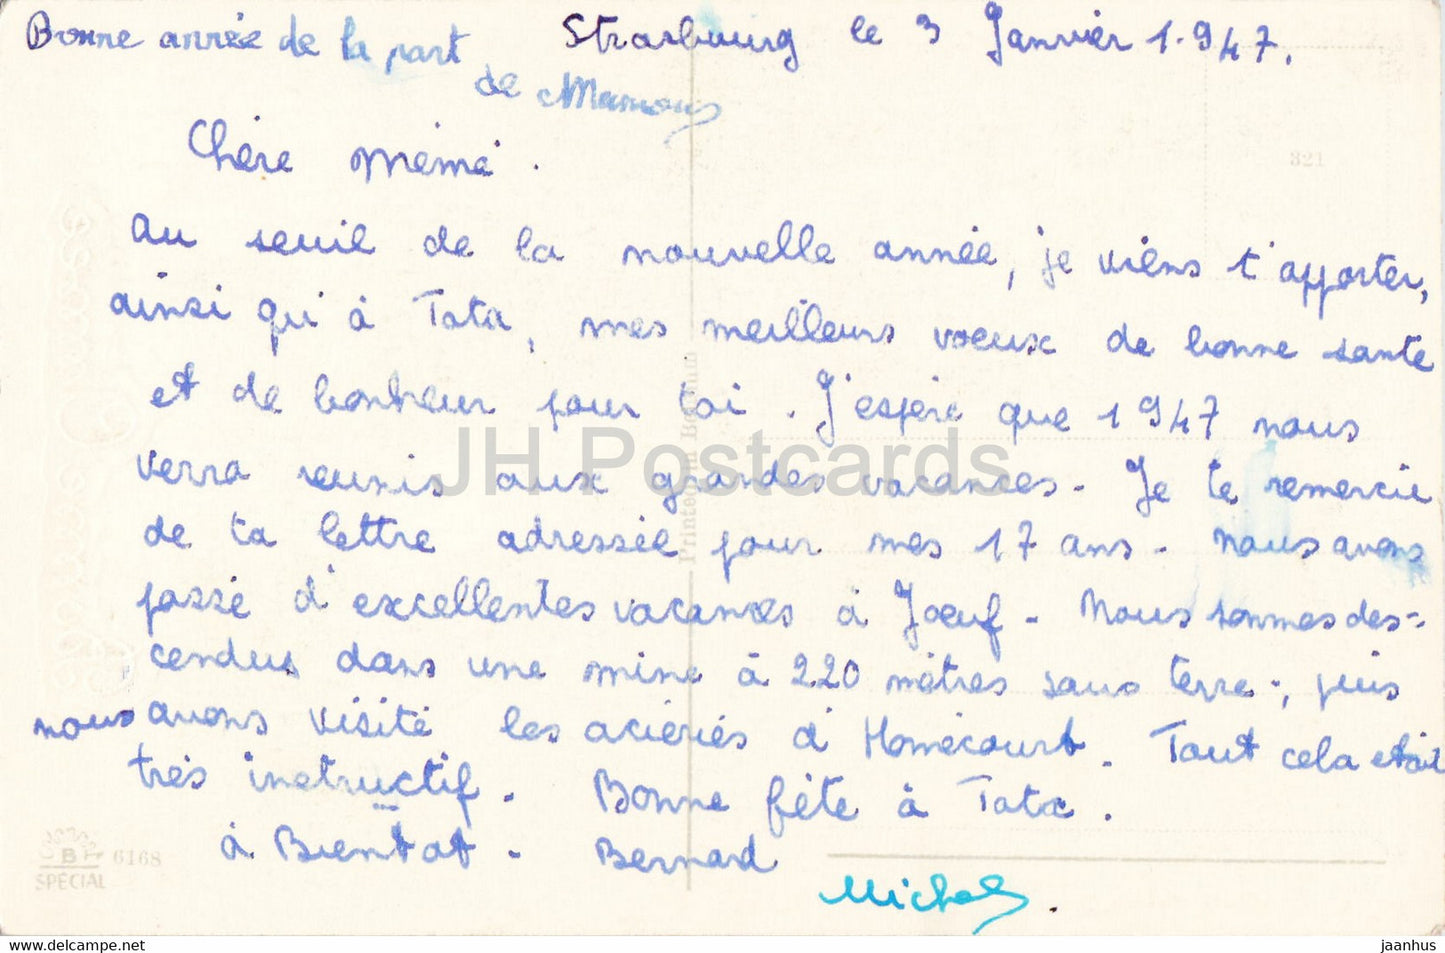 Bonne année de la part
de Maman
Strasbourg le 3 Janvier 1.947.
321
Chère Mémé.
au seuil de la nouvelle année, je viens t'apporter,
ainsi qu'à Tata, mes meilleurs voeux de bonne santé
et de bonheur pour toi. J'espère que 1947 nous
verra reunis aux grandes vacances. Je te remercie
de ta lettre adressée pour mes 17 ans. Nous avons
passé d'excellentes vacances à Joeuf. Nous sommes des-
cendus dans une mine à 220 mètres sous terre, puis
nous avons visité les aciéries d'Homécourt. Tout cela etait
très instructif. Bonne fête à Tata.
à Bientot. Bernard
Michel.
Printed in Belgium
B 6168
SPÉCIAL
JH Postcards
www.delcampe.net
jaanhus